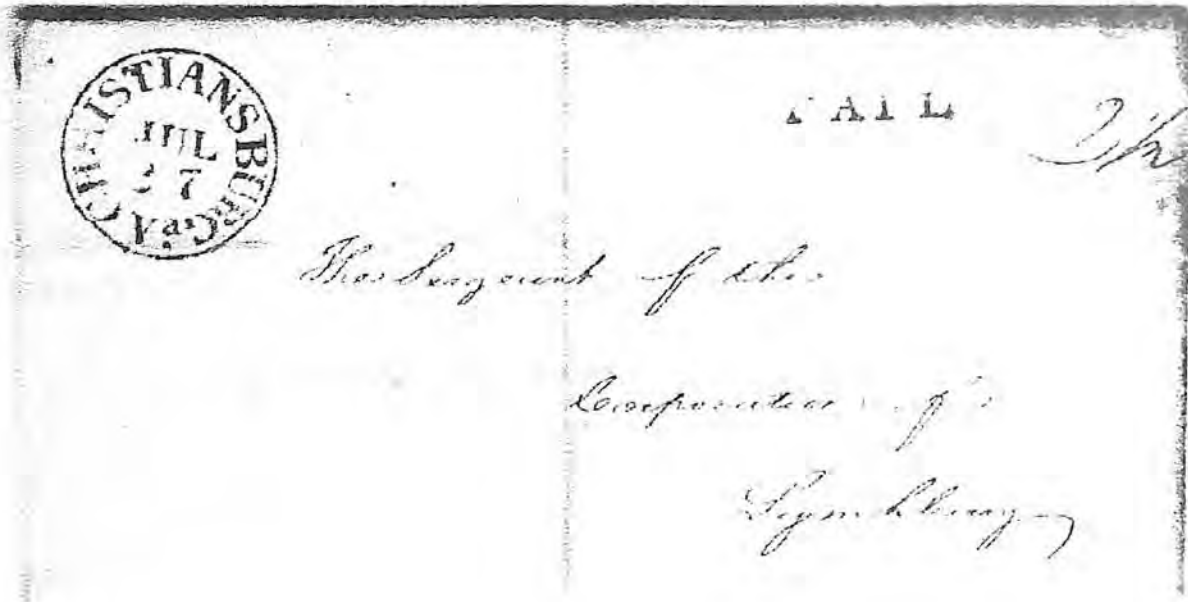 CHRISTIANSBURG VA
JUL
27
PAID
2 1/2
The Sergeant of the
Corporation of
Lynchburg